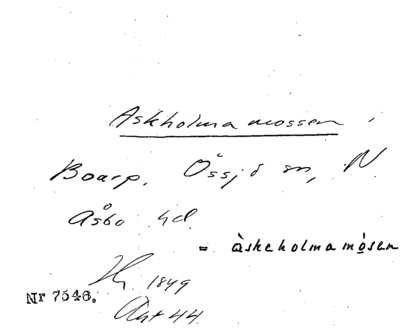 Askholma mossen,
Boarp, Össjö sn, N.
Åsbo hd.
= àskeholmamósen
1849
Nr 7546.
44